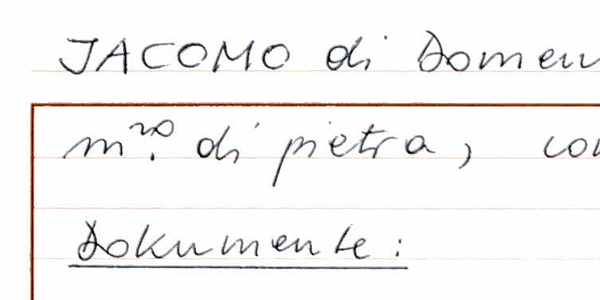 JACOMO di Domen
m.ro di pietra, con
Dokumente: